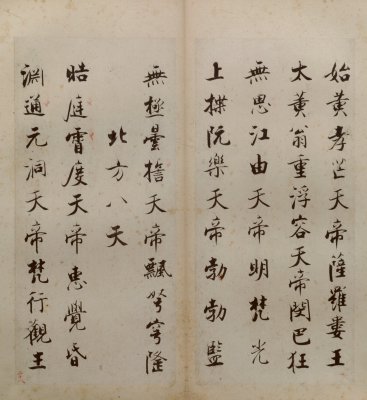 始黃孝芒天帝薩羅婁王
太黃翁重浮容天帝閔巴狂
無思江由天帝明梵光
上揲阮樂天帝勃勃監
無極曇天帝飄弩穹隆
北方八天
皓庭霄度天帝惠覺昏
淵通元洞天帝梵行觀生